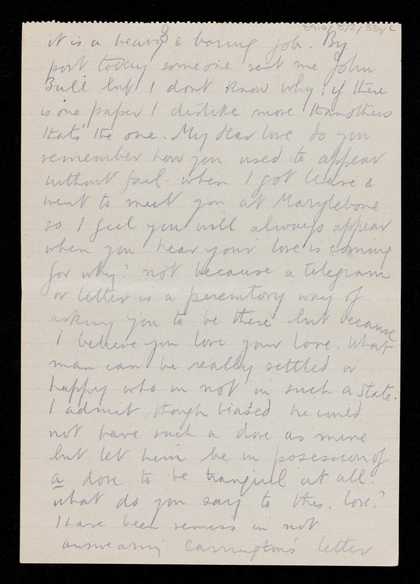 it is a heavy & boring job. By
post today someone sent me John
Bull but I dont know why: if there
is one paper I dislike more than others
thats the one. My dear love do you
remember how you used to appear
without fail when I got leave &
went to meet you at Marylebone
so I feel you will always appear
when you hear your love is coming
for why? not because a telegram
or letter is a peremtory way of
asking you to be there but because
I believe you love your love. What
man can be really settled or
happy who in not in such a state.
I admit though biased he could
not have such a dove as mine
but let him be in posession of
a dove to be tranquil at all.
what do you say to this. love?
I have been remiss in not
answearing Carrington's letter